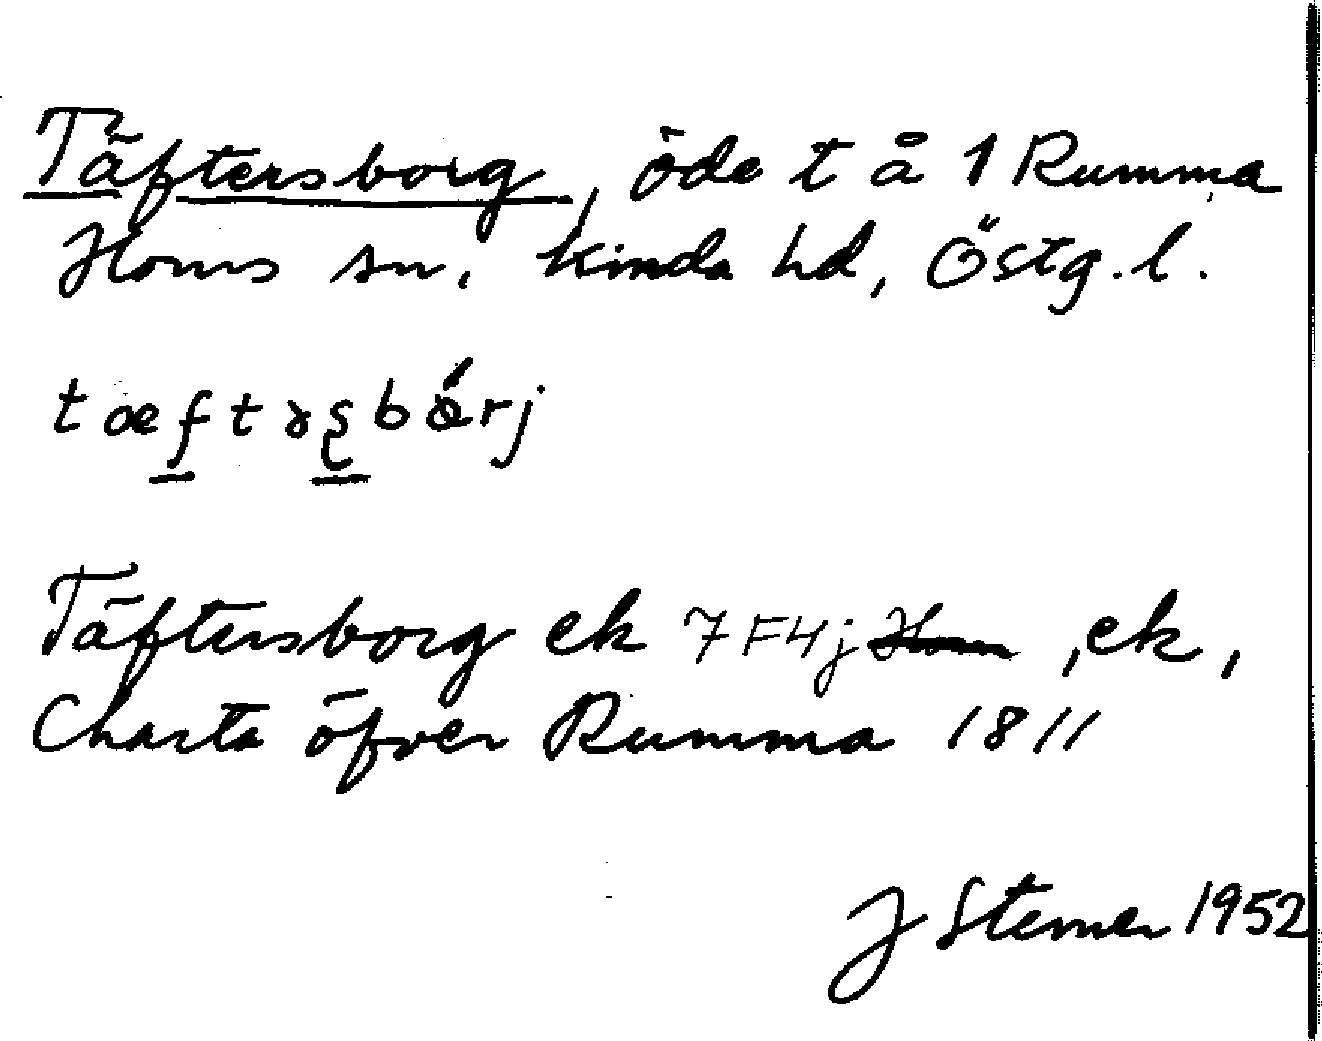 Täftersborg, öde t å 1 Rumma
Horns sn, Kinda hd, Östg.l.
tæftɤʂbǿrj
Täftersborg ek 7F4j Horn, ek,
Charta öfver Rumma 1811
J Sterner 1952